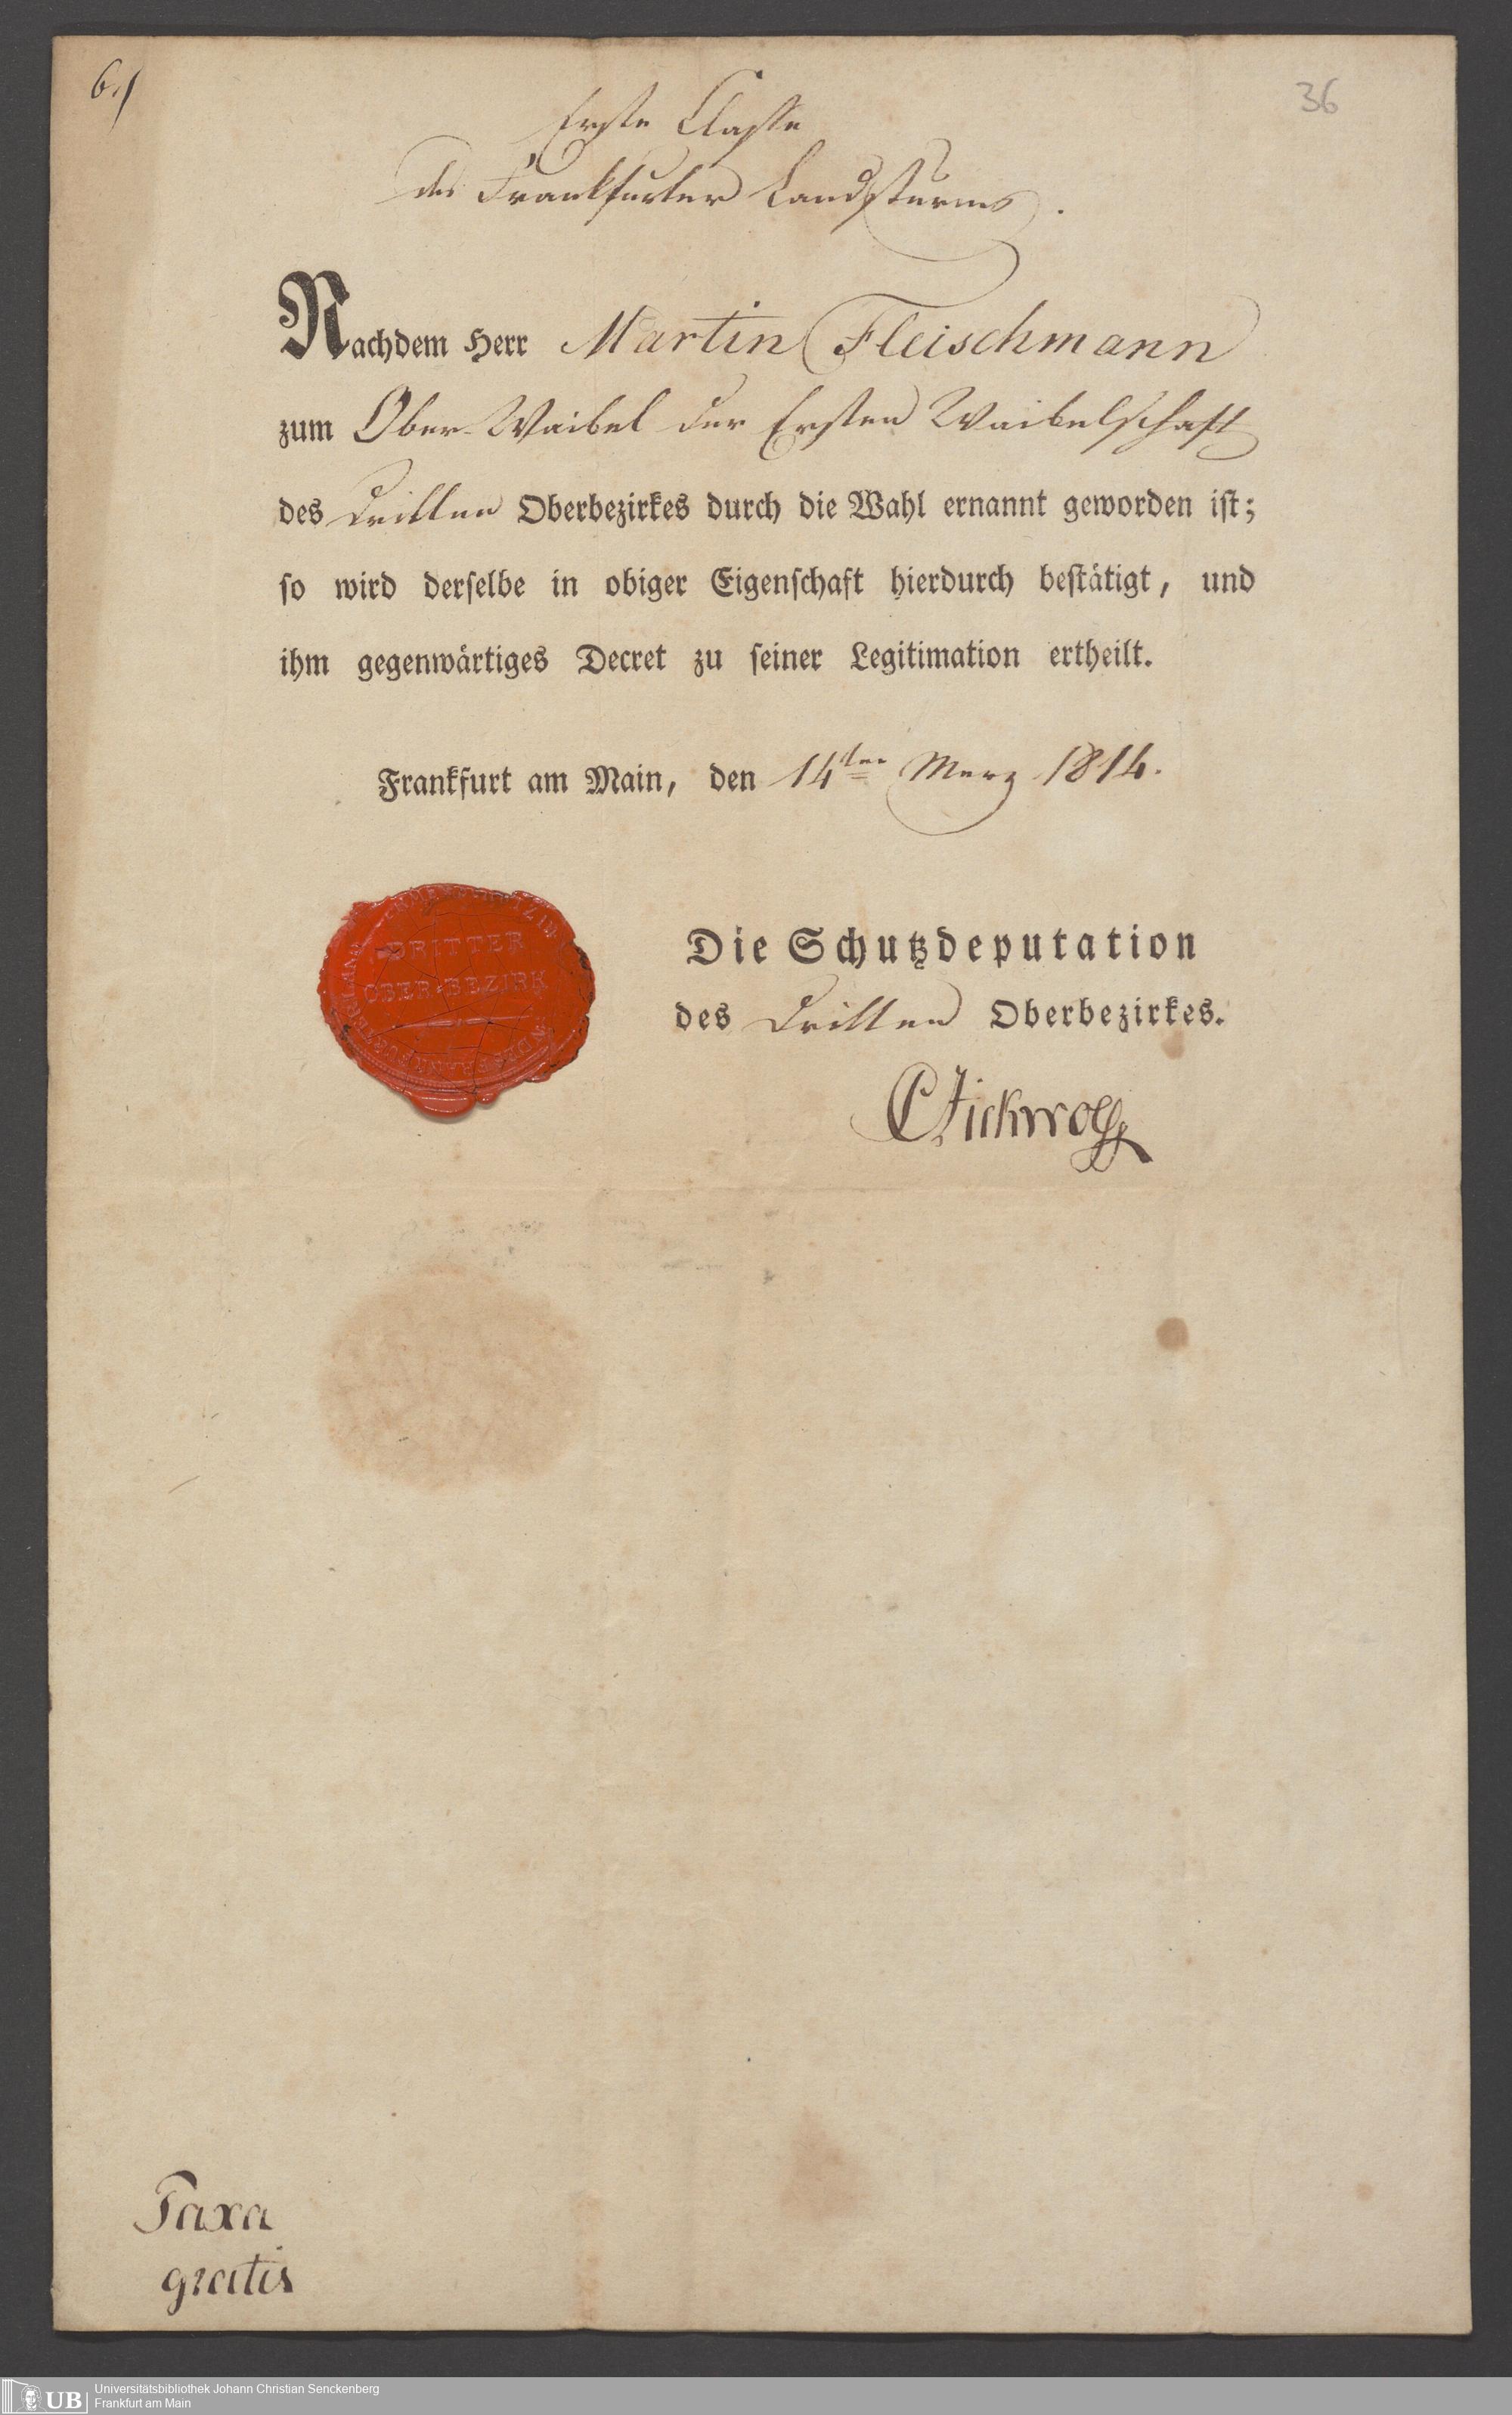 6.)
36
Erste Classe
des Frankfurter Landsturms.
Nachdem Herr Martin Fleischmann
zum Ober-Waibel der Ersten Waibelschaft
des Dritten Oberbezirkes durch die Wahl ernannt geworden ist;
so wird derselbe in obiger Eigenschaft hierdurch bestätigt, und
ihm gegenwärtiges Decret zu seiner Legitimation ertheilt.
Frankfurt am Main, den 14ten Merz 1814.
DRITTER
OBER-BEZIRK
Die Schutzdeputation
des Dritten Oberbezirkes.
Taxa
gratis
UB
Universitätsbibliothek Johann Christian Senckenberg
Frankfurt am Main